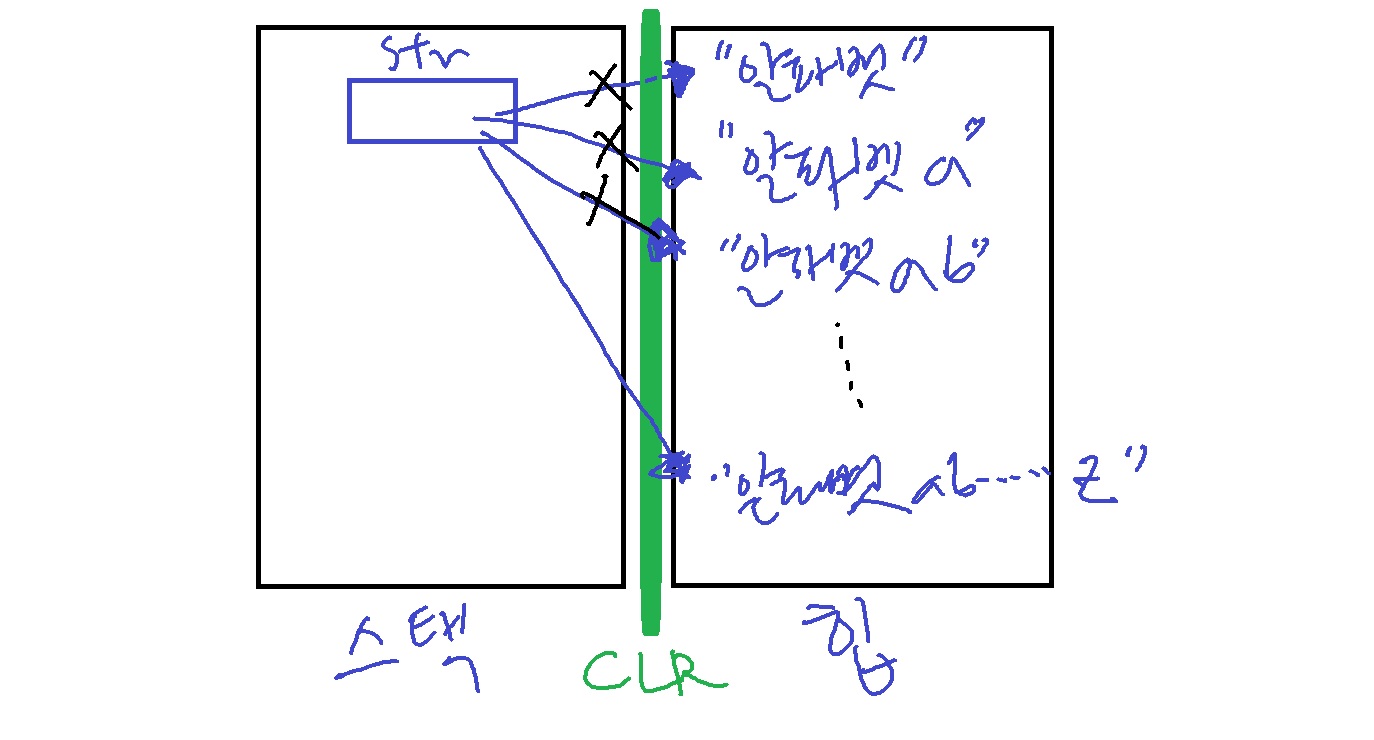 str
"알파벳"
"알파벳 a"
"알파벳 ab"
"알파벳 ab ..... z"
스택
CLR
힙